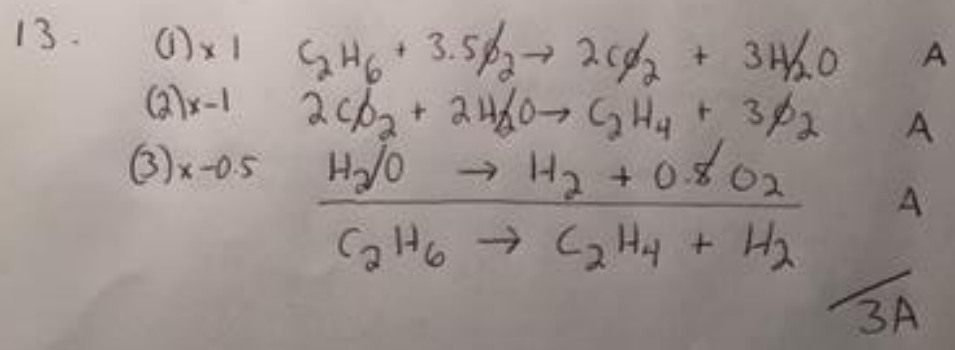 13. (1)x1 C₂H₆ + 3.5O₂ → 2CO₂ + 3H₂O A
(2)x-1 2CO₂ + 2H₂O → C₂H₄ + 3O₂ A
(3)x-0.5 H₂O → H₂ + 0.5O₂ A
C₂H₆ → C₂H₄ + H₂
/3A